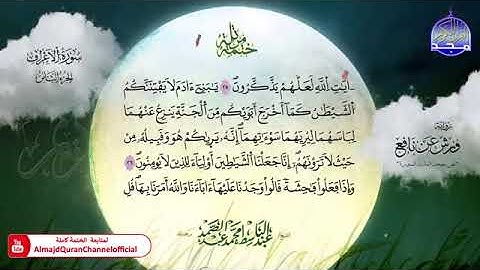 ختمة مرتلة
سُورَةُ الأَعْرَافِ
الجزء الثامن
مجد
ءَايَٰتِ اِ۬للَّهِ لَعَلَّهُمْ يَذَّكَّرُونَۖ ٢٥ يَٰبَنِےٓ ءَادَمَ لَا يَفْتِنَنَّكُمُ
اُ۬لشَّيْطَٰنُ كَمَآ أَخْرَجَ أَبَوَيْكُم مِّنَ اَ۬لْجَنَّةِ يَنزِعُ عَنْهُمَا
لِبَاسَهُمَا لِيُرِيَهُمَا سَوْءَٰتِهِمَآۖ إِنَّهُۥ يَرَيٰكُمْ هُوَ وَقَبِيلُهُۥ مِنْ
حَيْثُ لَا تَرَوْنَهُمُۥٓۖ إِنَّا جَعَلْنَا اَ۬لشَّيَٰطِينَ أَوْلِيَآءَ لِلذِينَ لَا يُومِنُونَۖ ٢٦
وَإِذَا فَعَلُواْ فَٰحِشَةٗ قَالُواْ وَجَدْنَا عَلَيْهَآ ءَابَآءَنَا وَاللَّهُ أَمَرَنَا بِهَاۖ قُلِ
برواية
ورش عن نافع
عبد الباسط محمد عبد الصمد
لمتابعة الختمة كاملة
AlmajdQuranChannelofficial